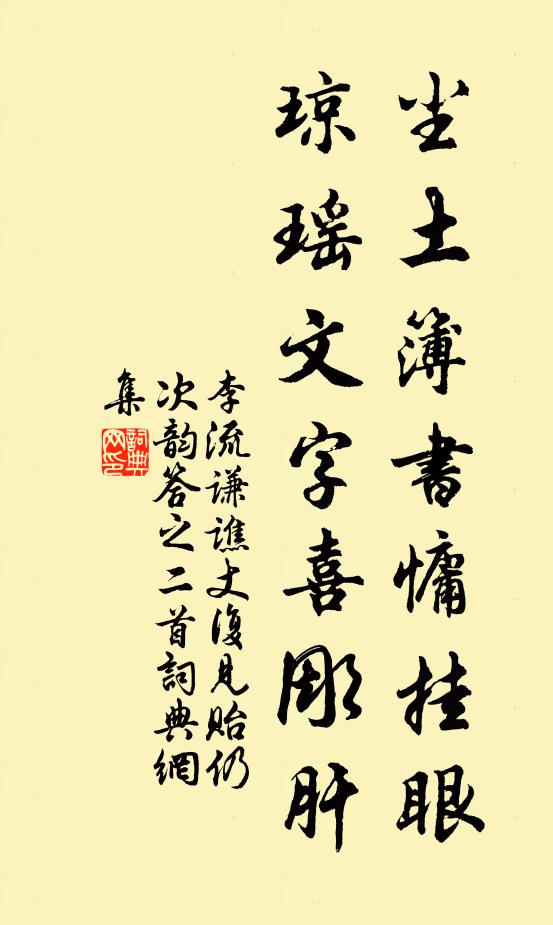 尘土簿书慵挂眼
琼瑶文字喜彫肝
李流谦谯丈復見贻仍
次韵答之二首詞典網
集
詞典
网印